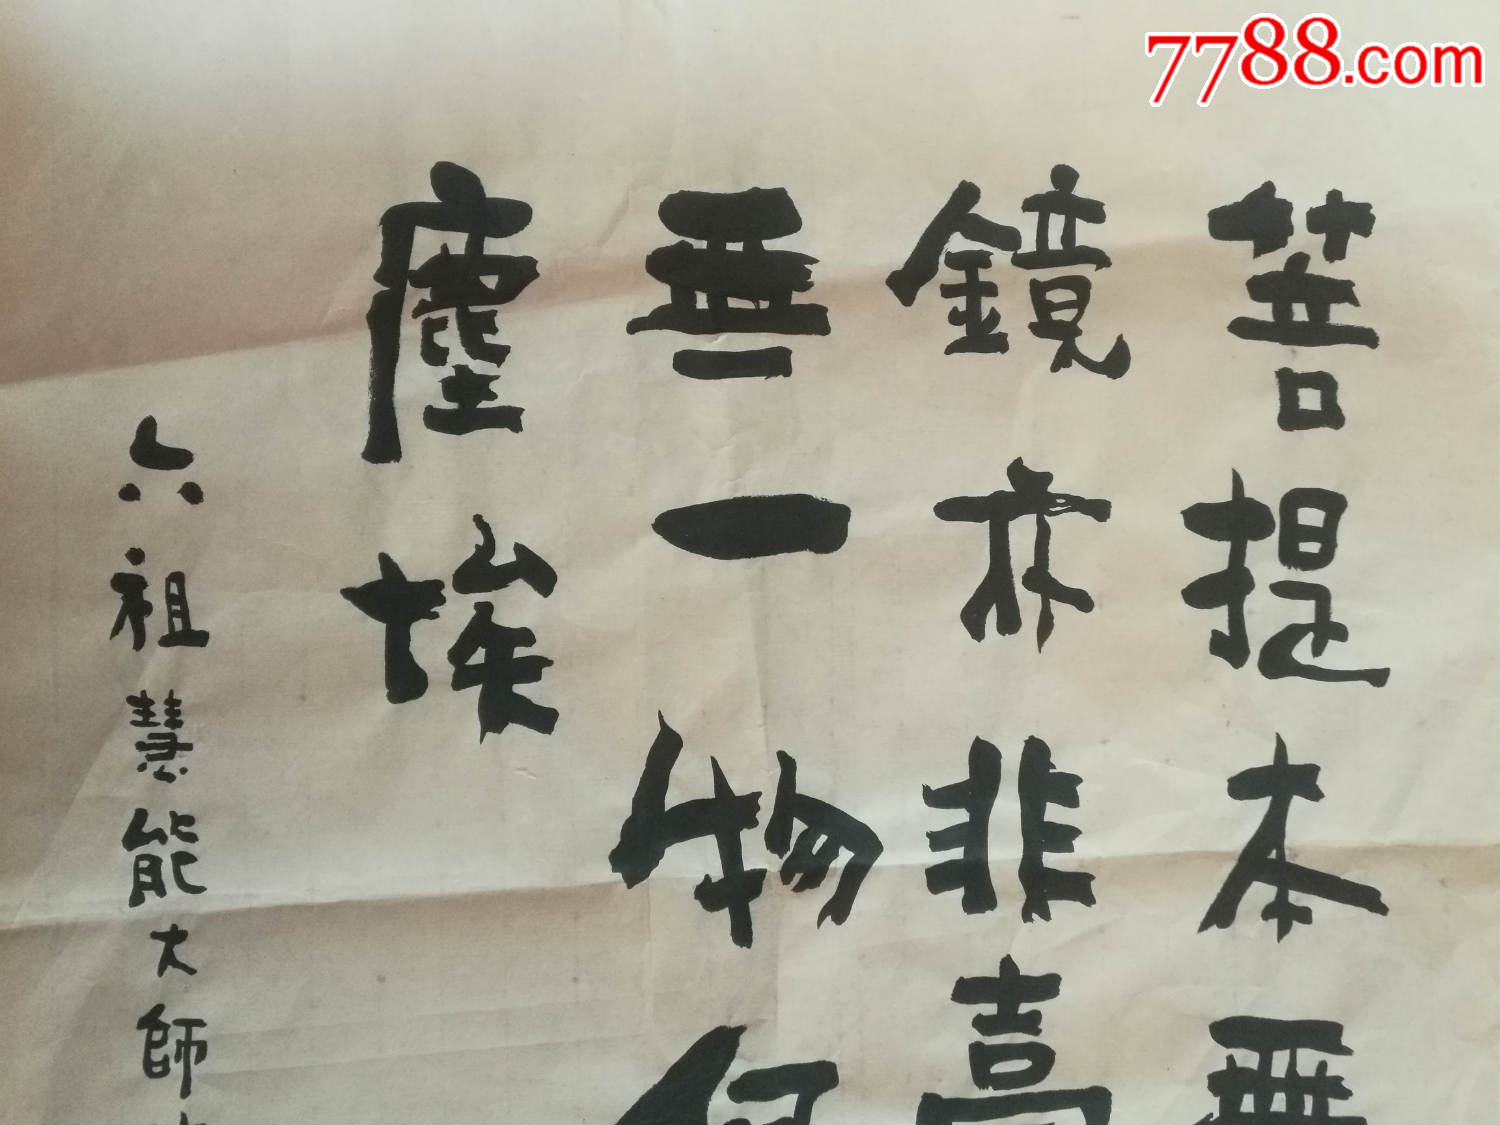 7788.com
菩提本無
鏡亦非臺
無一物何
塵埃
六祖慧能大師